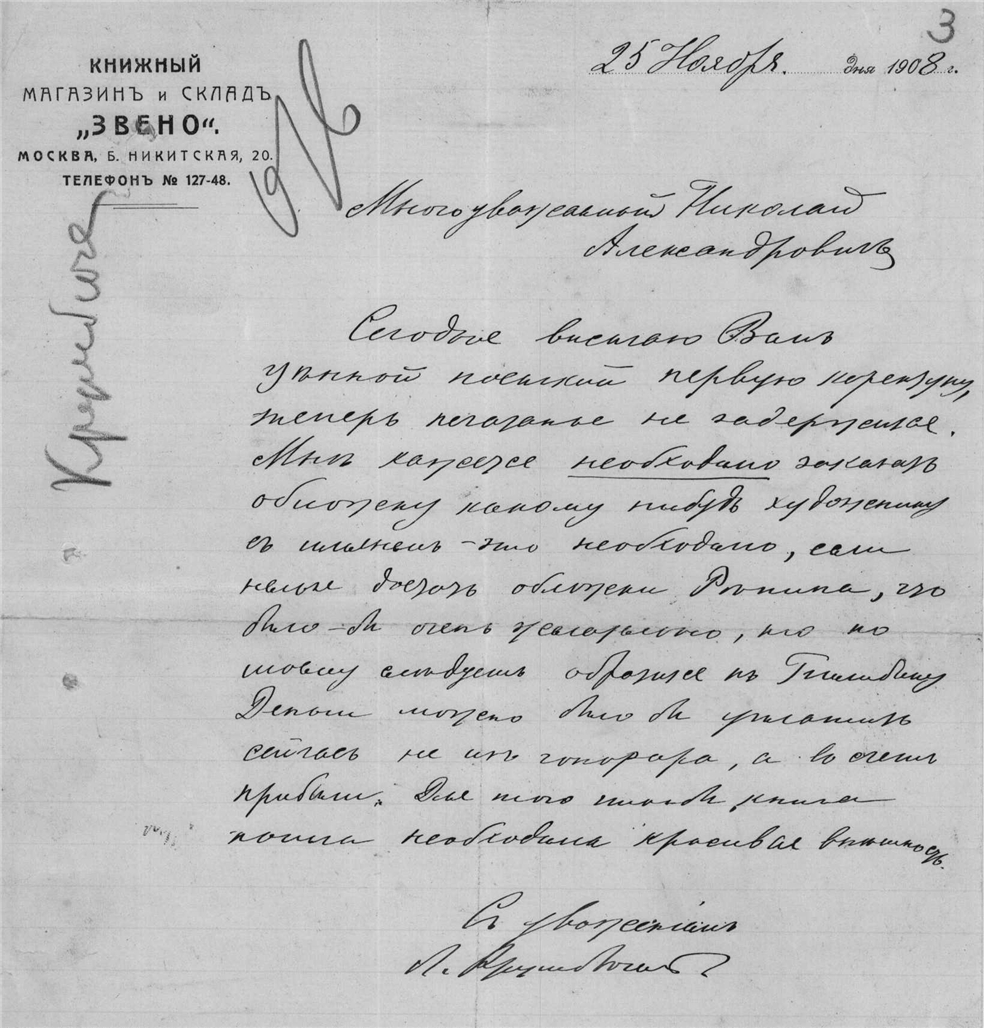 3
КНИЖНЫЙ
МАГАЗИНЪ и СКЛАДЪ
„ЗВЕНО“.
МОСКВА, Б. НИКИТСКАЯ, 20.
ТЕЛЕФОНЪ № 127-48.
25 Ноября. дня 1908 г.
Многоуважаемый Николай
Александровичъ
Сегодня высылаю Вамъ
цѣнной посылкой первую корректуру,
теперь печатанье не задержится.
Мнѣ кажется необходимо заказать
обложку какому нибудь художнику
съ именемъ - это необходимо, если
нельзя достать обложки Рѣпина, что
было-бы очень желательно, то по
моему слѣдуетъ обратится къ Билибину
Деньги можно было бы уплатить
сейчасъ не изъ гонорара, а въ счетъ
прибыли. Для того чтобы книга
пошла необходима красивая внѣшность.
Съ уваженіемъ